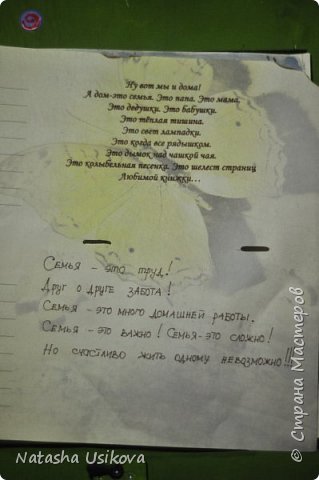 Ну вот мы и дома!
А дом-это семья. Это папа. Это мама.
Это дедушки. Это бабушки.
Это тёплая тишина.
Это свет лампадки.
Это когда все рядышком.
Это дымок над чашкой чая.
Это колыбельная песенка. Это шелест страниц
Любимой книжки…
Семья - это труд!
Друг о друге забота!
Семья - это много домашней работы.
Семья - это важно! Семья-это сложно!
Но счастливо жить одному невозможно!!!
© Страна Мастеров
Natasha Usikova